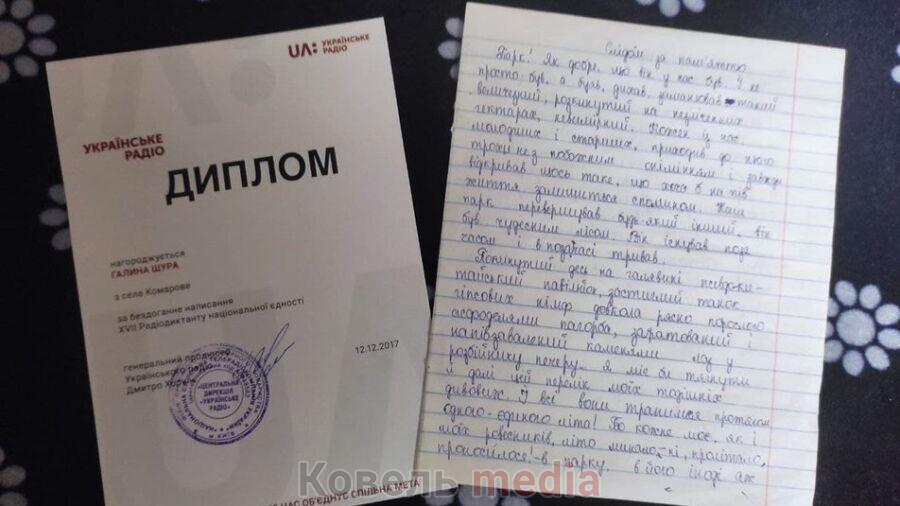 UA: УКРАЇНСЬКЕ
РАДІО
УКРАЇНСЬКЕ
РАДІО
ДИПЛОМ
нагороджується
ГАЛИНА ШУРА
з села Комарове
за бездоганне написання
XVII Радіодиктанту національної єдності
генеральний продюсер
Українського радіо
Дмитро
12.12.2017
ЦЕНТРАЛЬНА
ДИРЕКЦІЯ
«УКРАЇНСЬКЕ
РАДІО»
НАС ОБ'ЄДНУЄ СПІЛЬНА МЕТА
Слідом за пам'яттю
Парк! Як добре, що він у нас був. І не
просто був, а буяв, дихав, заманював такий
величезний, розкинутий на незліченних
гектарах, невимірний. Кожен із нас,
молодших і старших, приходив до нього
трохи не з побожним і завжди
відкривав щось таке, що хоча б на пів
життя залишиться спомином. Наш
парк перевершував будь-який інший. Він
був чудесним лісом. Він існував поза
часом і в позачасі тривав.
Покинутий десь на галявині псевдоки-
тайський павільйон, застиглий танок
гіпсових німф довкола рясно порослого
асфоделями пагорба, загратований і
напівзавалений каменями лаз у
розбійницьку печеру... я міг би тягнути
й далі цей перелік моїх тодішніх
дивовиж. І всі вони трапилися протягом
одного-єдиного літа! Бо кожне моє, як і
моїх ровесників, літо минало, ні, пролітало,
проносилося! - в парку. В його іноді аж
Ковель media